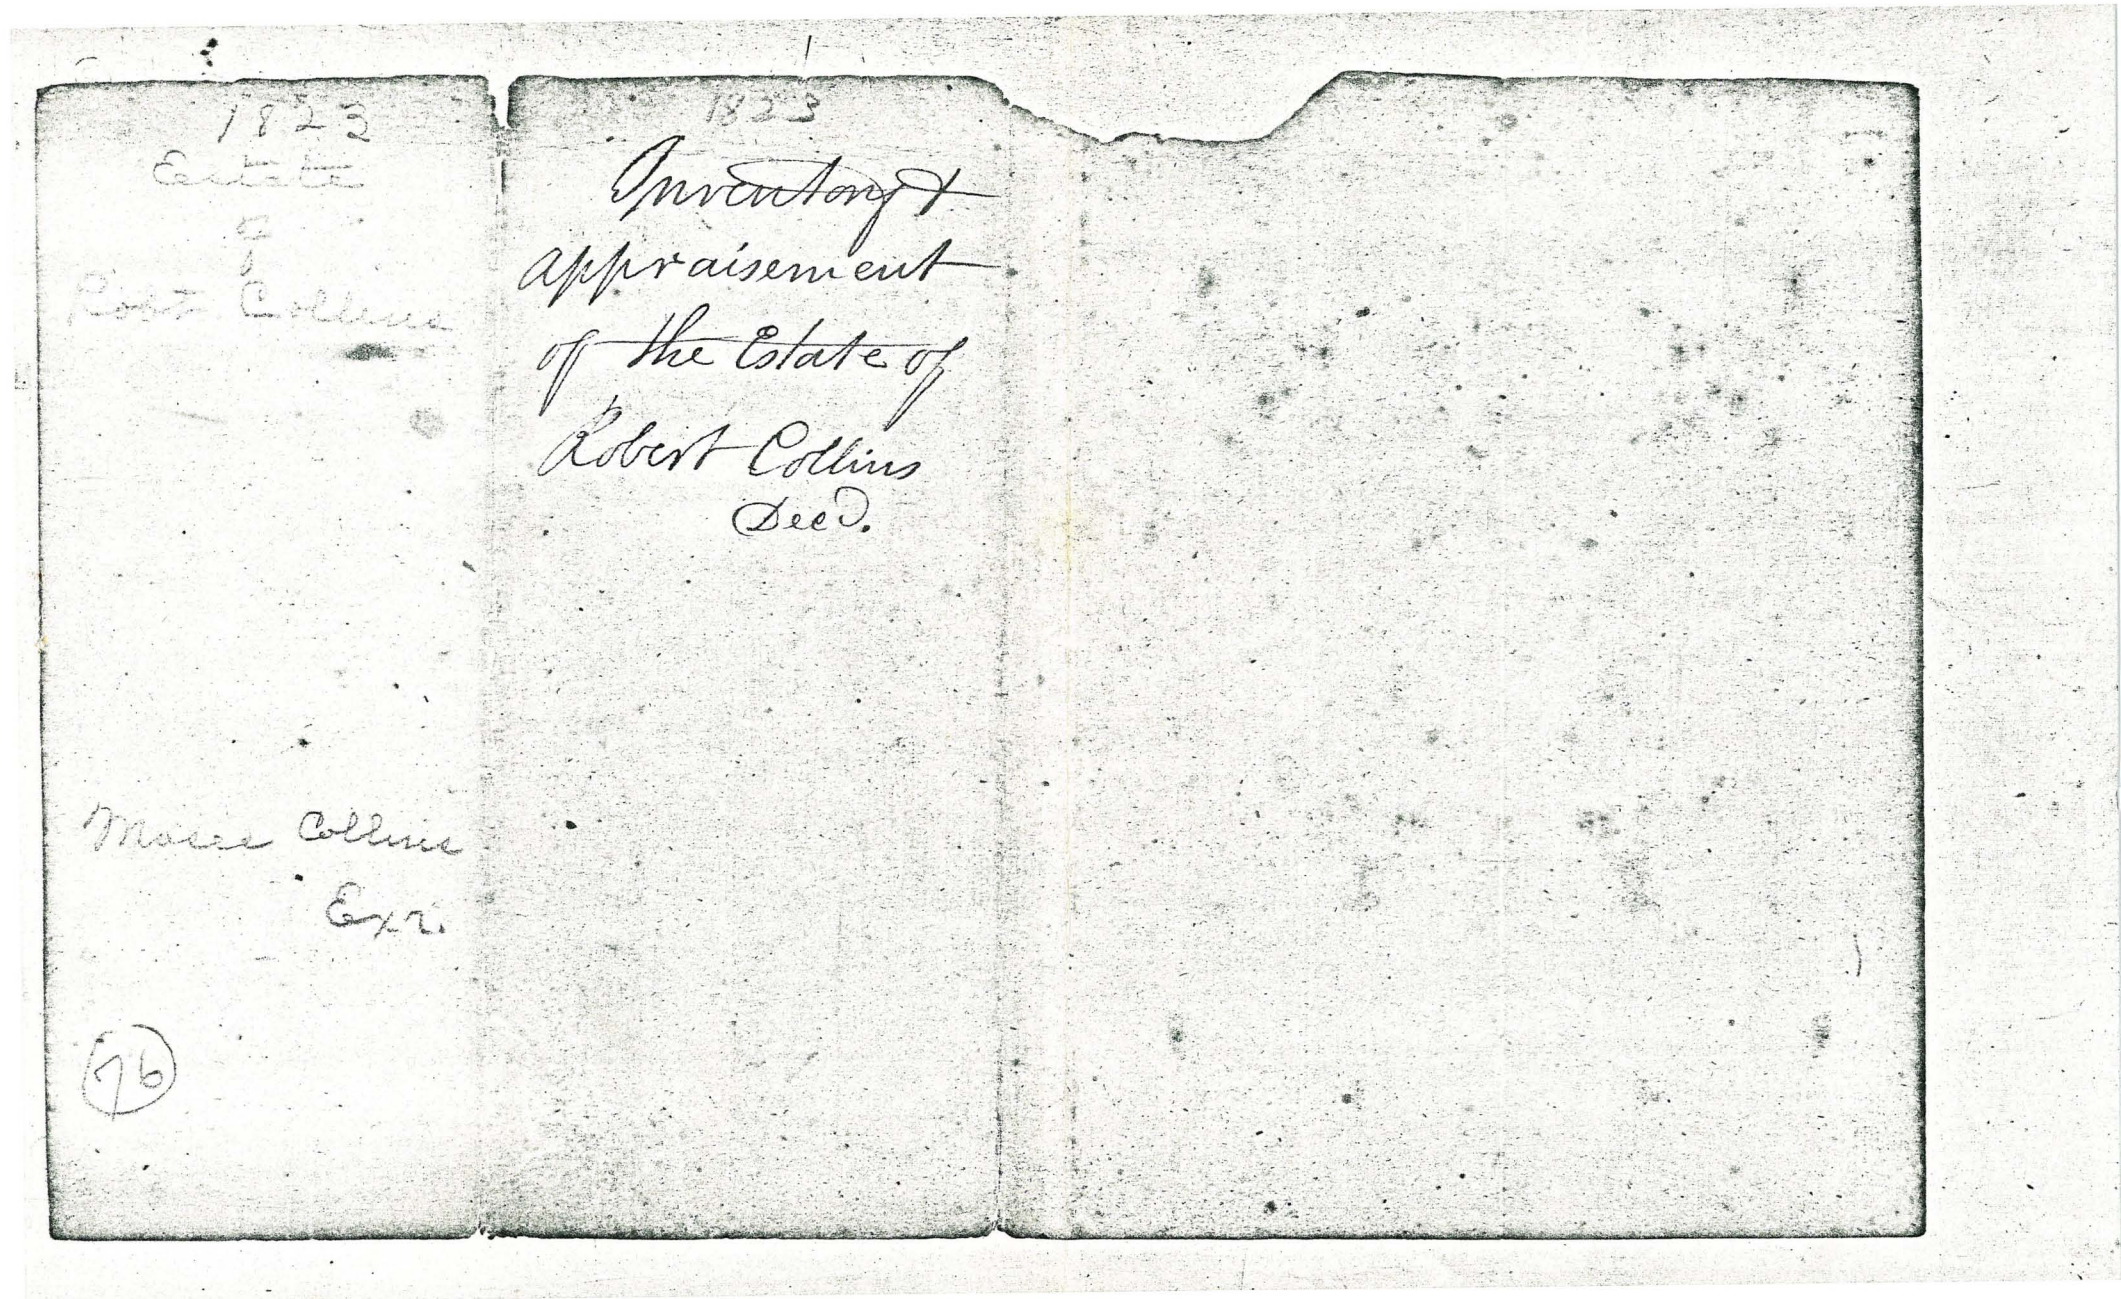 1823
Estate
of
Robt. Collins
Moses Collins
Exr.
76
1823
Inventory &
appraisement
of the Estate of
Robert Collins
Decd.